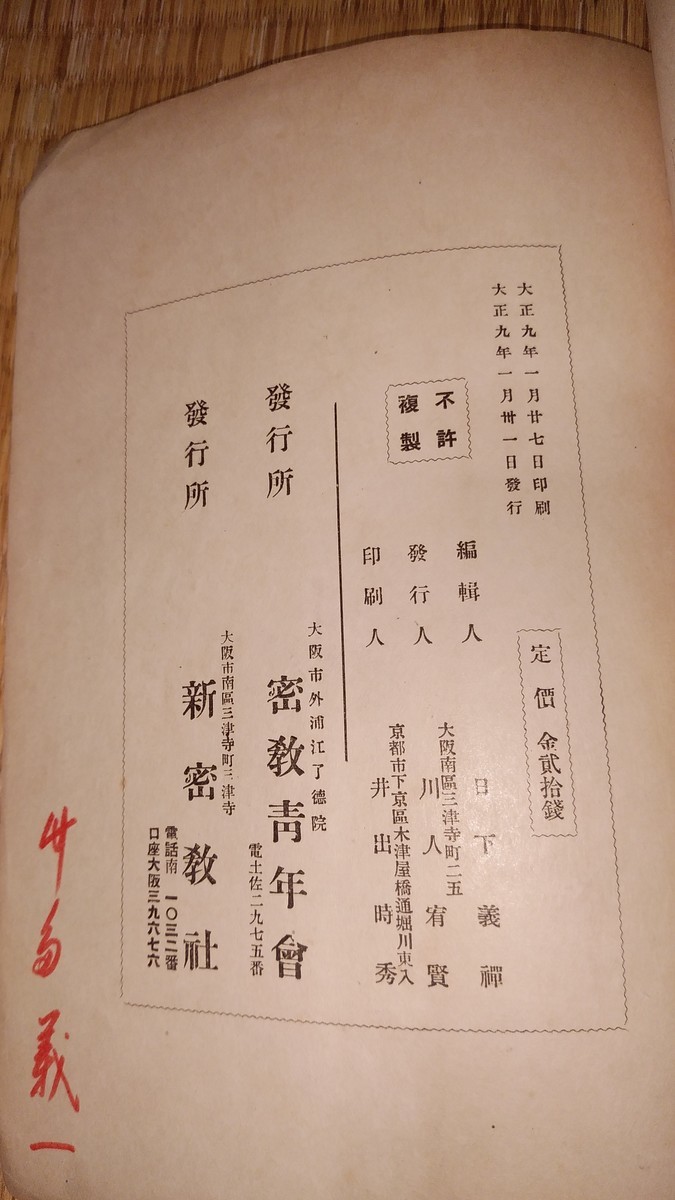 大正九年一月廿七日印刷
大正九年一月卅一日發行
定價 金貳拾錢
不許
複製
編輯人 日下義禪
大阪南區三津寺町二五
發行人 川人宥賢
京都市下京區木津屋橋通堀川東入
印刷人 井出時秀
大阪市外浦江了德院
發行所 密教靑年會
電土佐二九七五番
大阪市南區三津寺町三津寺
發行所 新密教社
電話南 一〇三二番
口座大阪三九六七六
義一